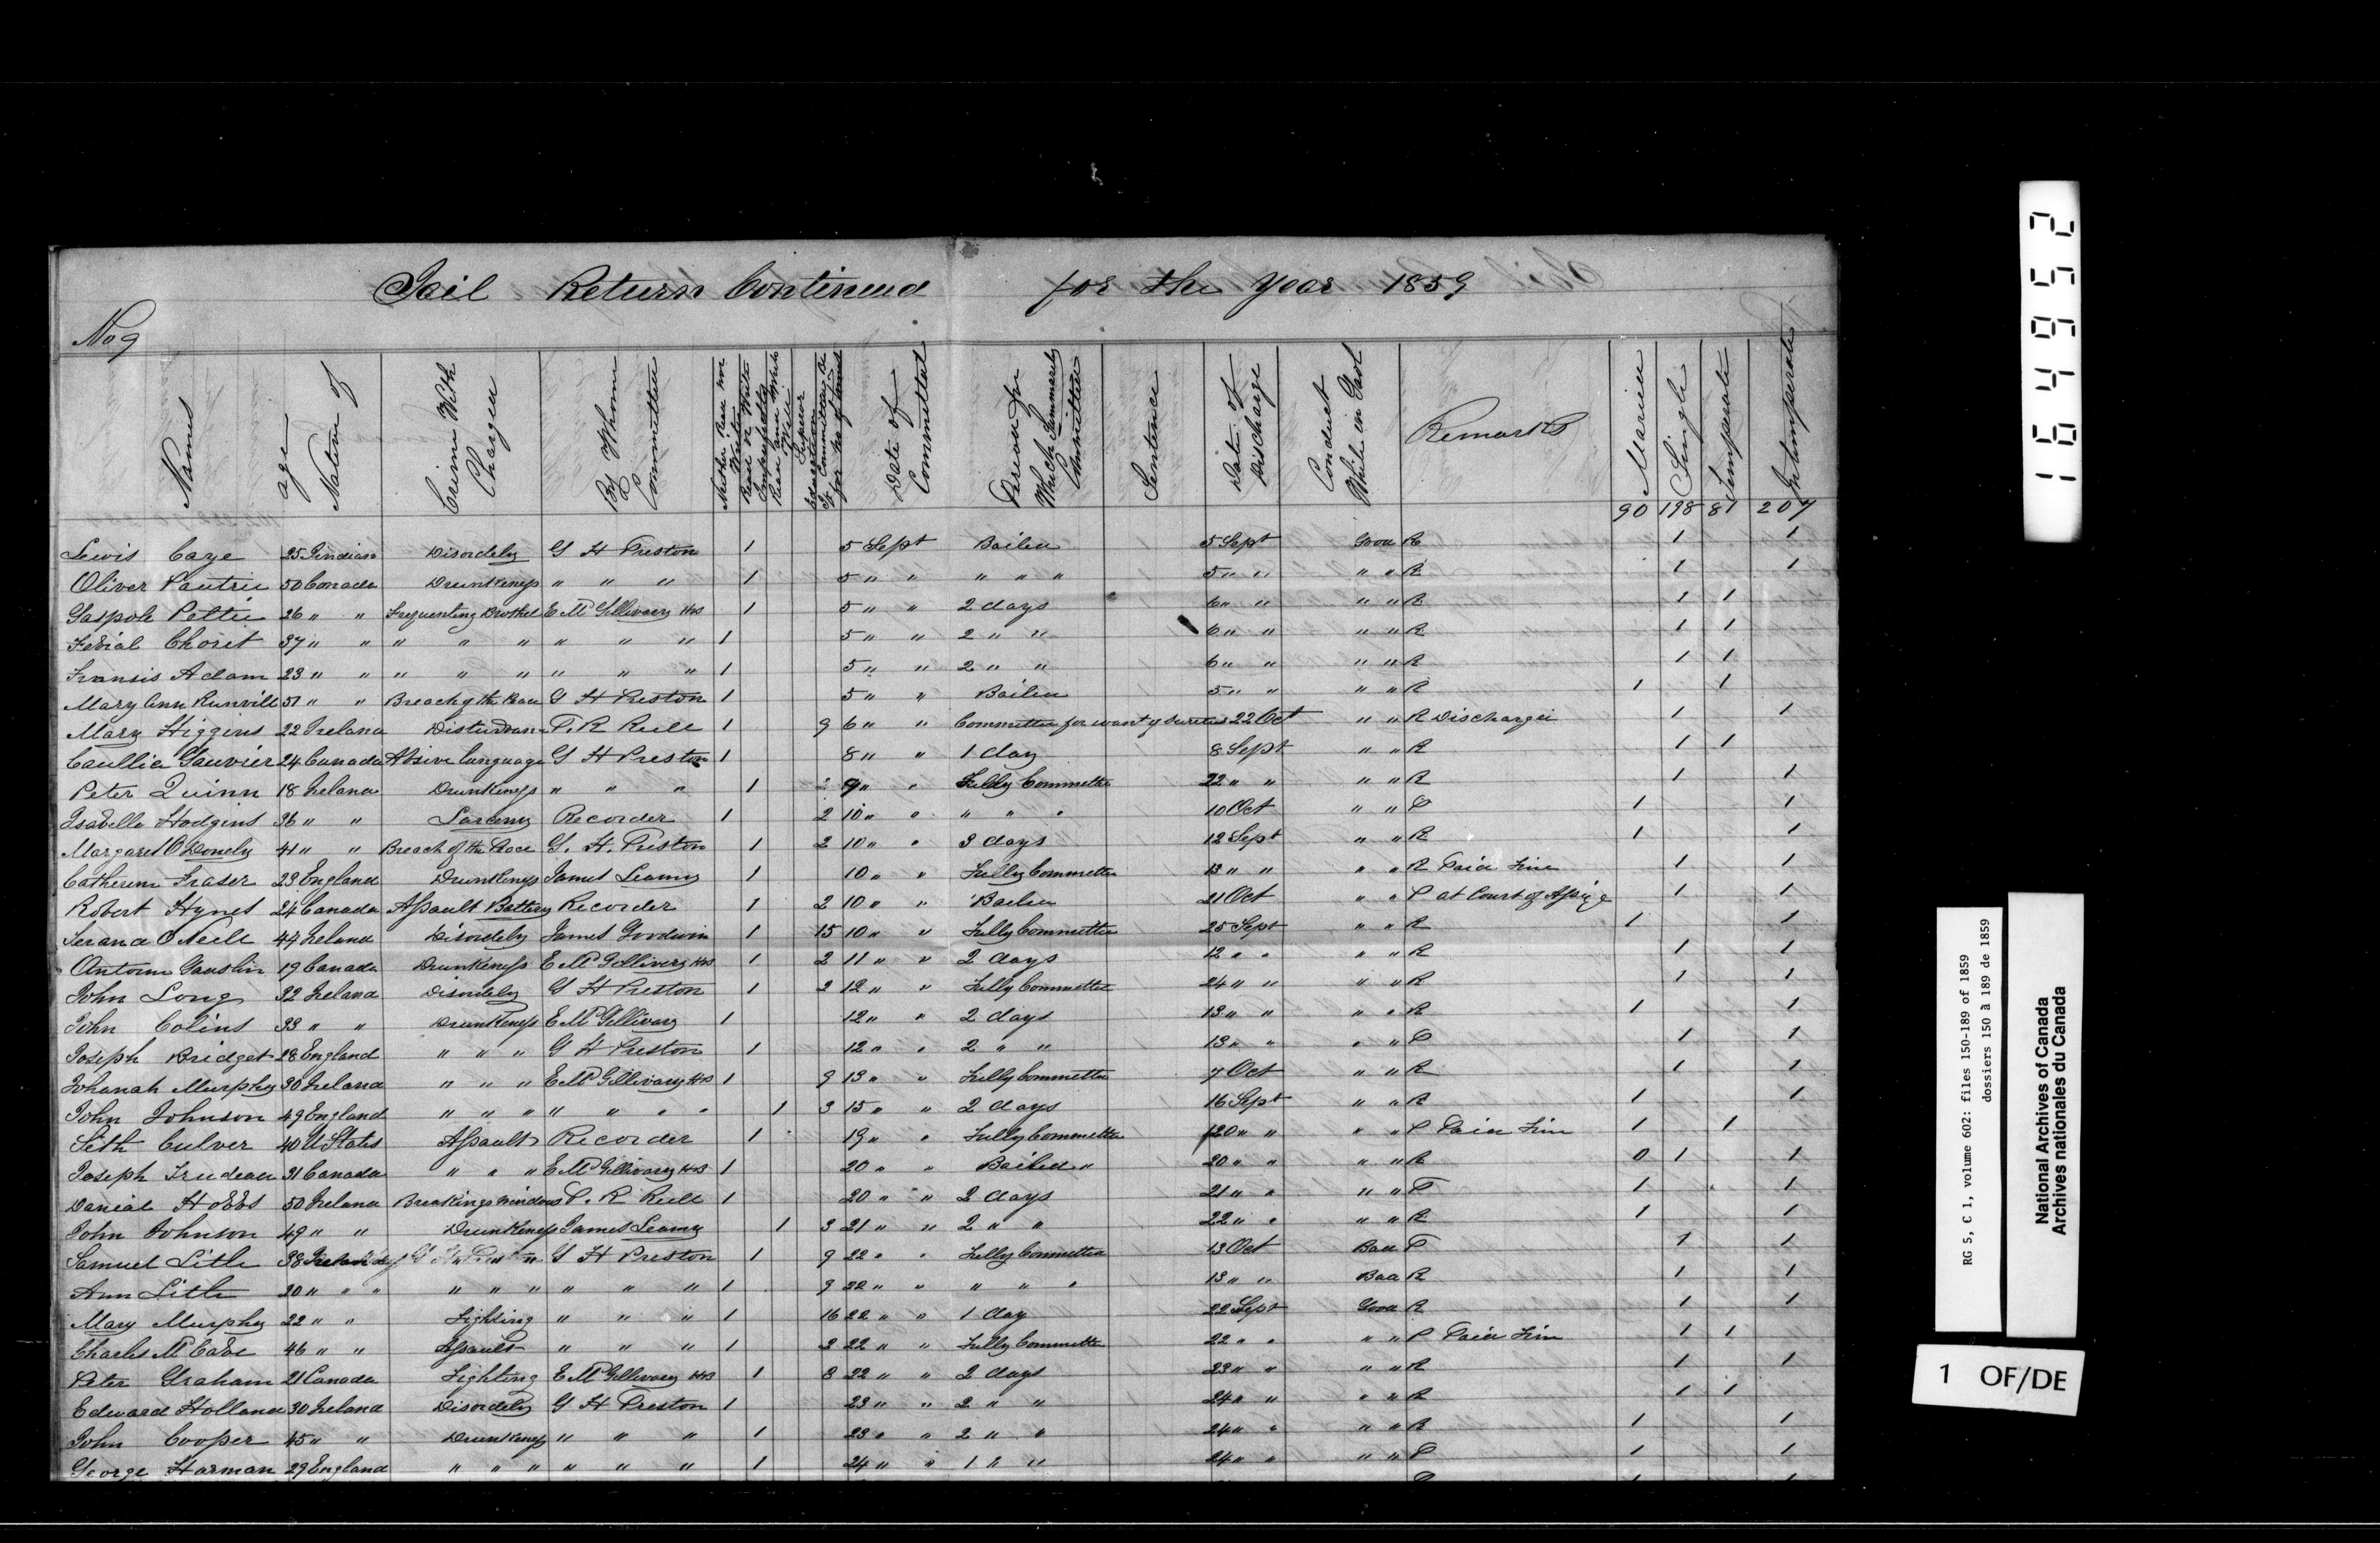 Jail Return Continued for the Year 1859
No 9
Names
age
Nation of
Crime With Charged
By Whome Committed
Neither Read nor Write
Read or Write Imperfectly
Read and Write Well
Superior Education
To Committal to for No of times
Date of Committal
Period for Which Summarily Committed
Sentence
Date of Discharge
Conduct While in Gaol
Remarks
Married
Single
Temperate
Intemperate
90 198 81 207
Lewis Caze 25 Indian Disordely G H Preston 1 5 Sept Bailed 5 Sept Good R 1 1
Oliver Pautrie 50 Canada Drunkeness " " " 1 5 " " " " " 5 " " " " R 1 1
Gaspole Pettie 26 " " Frequenting Brothel E McGillivary HB 1 5 " " 2 days 6 " " " " R 1 1
Fedial Choret 37 " " " " " " " " 1 5 " " 2 " " 6 " " " " R 1 1
Fransis Adam 23 " " " " " " " " 1 5 " " 2 " " 6 " " " " R 1 1
Mary Ann Runvill 51 " " Breach of the Peace G H Preston 1 5 " " Bailed 5 " " " " R 1 1
Mary Higgins 22 Ireland Disturbance P. R Reill 1 9 6 " " Committed for want of Sureties 22 Oct " " R Discharged 1 1
Caullia Gauvier 24 Canada Absive language G H Preston 1 8 " " 1 day 8 Sept " " R 1 1
Peter Quinn 18 Ireland Drunkeness " " " 1 2 9 " " Fully Committed 22 " " " " R 1 1
Isabella Hodgins 36 " " Larceny Recorder 1 2 10 " " " " " 10 Oct " " P 1 1
Margaret O Donely 41 " " Breach of the Peace G. H. Preston 1 2 10 " " 3 days 12 Sept " " R 1 1
Catherine Fraser 23 England Drunkeness James Leamy 1 10 " " Fully Committed 13 " " " " R Paid Fine 1 1
Robert Hynes 24 Canada Assault Battery Recorder 1 2 10 " " Bailed 21 Oct " " P at Court of Assize 1 1
Serana O Neill 44 Ireland Disordely James Goodwin 1 15 10 " " Fully Committed 25 Sept " " R 1 1
Antoin Gauslin 19 Canada Drunkeness E McGillivery HB 1 2 11 " " 2 days 12 " " " " R 1 1
John Long 32 Ireland Disordely G H Preston 1 2 12 " " Fully Committed 24 " " " " R 1 1
John Colins 33 " " Drunkeness E McGillivary 1 12 " " 2 days 13 " " " " R 1 1
Joseph Bridget 28 England " " " G H Preston 1 12 " " 2 " " 13 " " " " P 1 1
Johanah Murphy 30 Ireland " " " E McGillivary HB 1 9 13 " " Fully Committed 7 Oct " " R 1 1
John Johnson 49 England " " " " " " " 1 3 15 " " 2 days 16 Sept " " R 1 1
Seth Culver 40 U States Assault Recorder 1 19 " " Fully Committed 20 " " " " P Paid Fine 1 1
Joseph Trudeau 31 Canada " " " E McGillivary HB 1 20 " " Bailed " 20 " " " " R 0 1 1
Danial Hobbs 50 Ireland Breaking Windows P. R Reill 1 20 " " 2 days 21 " " " " P 1 1
John Johnson 49 " " Drunkeness James Leamy 1 3 21 " " 2 " " 22 " " " " R 1 1
Samuel Litle 38 Ireland G H Preston 1 9 22 " " Fully Committed 13 Oct Bad P 1 1
Ann Litle 30 " " " " " " " " " 1 9 22 " " " " " 13 " " Bad R 1 1
Mary Murphy 22 " " Fighting " " " 1 16 22 " " 1 day 22 Sept Good R 1 1
Charles McCabe 46 " " Assault " " " 1 2 22 " " Fully Committed 22 " " " " P Paid Fine 1 1
Peter Graham 21 Canada Fighting E McGillivary HB 1 8 22 " " 2 days 23 " " " " R 1 1
Edward Holland 30 Ireland Disordely G H Preston 1 23 " " 2 " " 24 " " " " R 1 1
John Cooper 45 " " Drunkeness " " " 1 23 " " 2 " " 24 " " " " R 1 1
George Harman 29 England " " " " " " 1 24 " " 1 " " 24 " " " " P 1 1
164952
RG 5, C 1, volume 602: files 150-189 of 1859
dossiers 150 à 189 de 1859
National Archives of Canada
Archives nationales du Canada
1 OF/DE